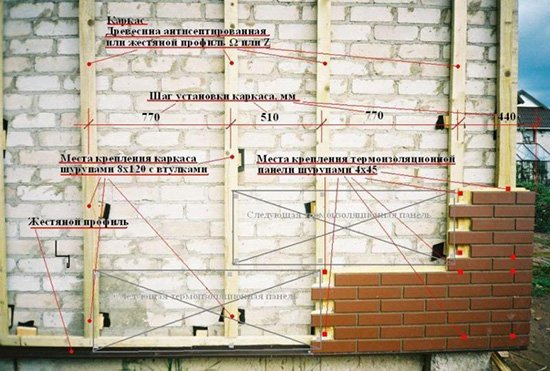 Каркас
Древесина антисептированная
или жестяной профиль Ω или Z
Шаг установки каркаса, мм
770
510
770
440
Места крепления каркаса
шурупами 8x120 с втулками
Места крепления термоизоляционной
панели шурупами 4x45
Жестяной профиль
Следующая термоизоляционная панель
Следующая термоизоляционная панель